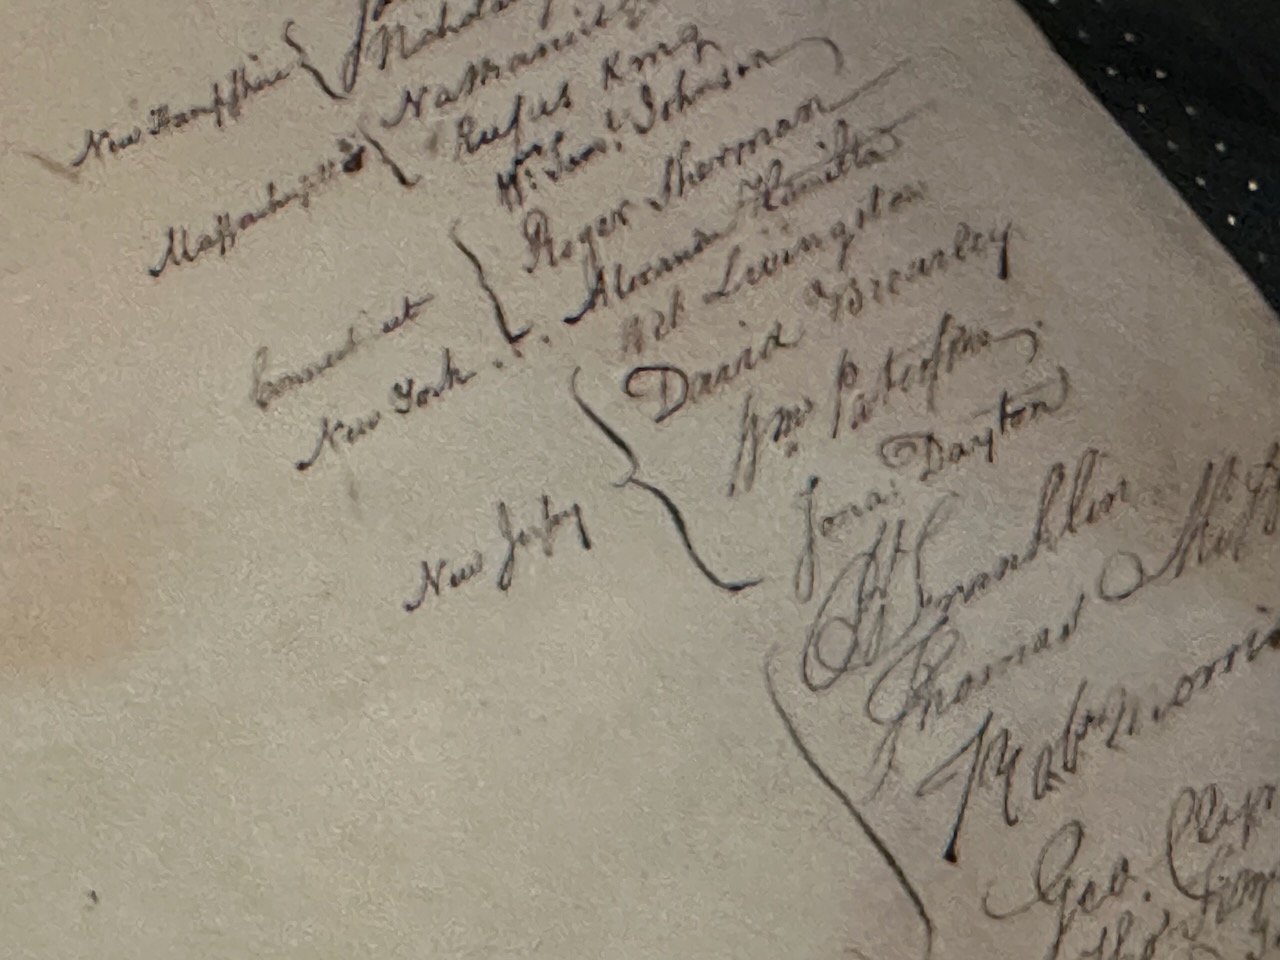 New Hampshire
Nicholas
Massachusetts
Nathaniel
Rufus King
Connecticut
Wm. Saml. Johnson
Roger Sherman
New York . . .
Alexander Hamilton
New Jersey
Wil Livingston
David Brearley
Wm Paterson
Jona: Dayton
B Franklin
Thomas
Robt Morris
Geo. Clym